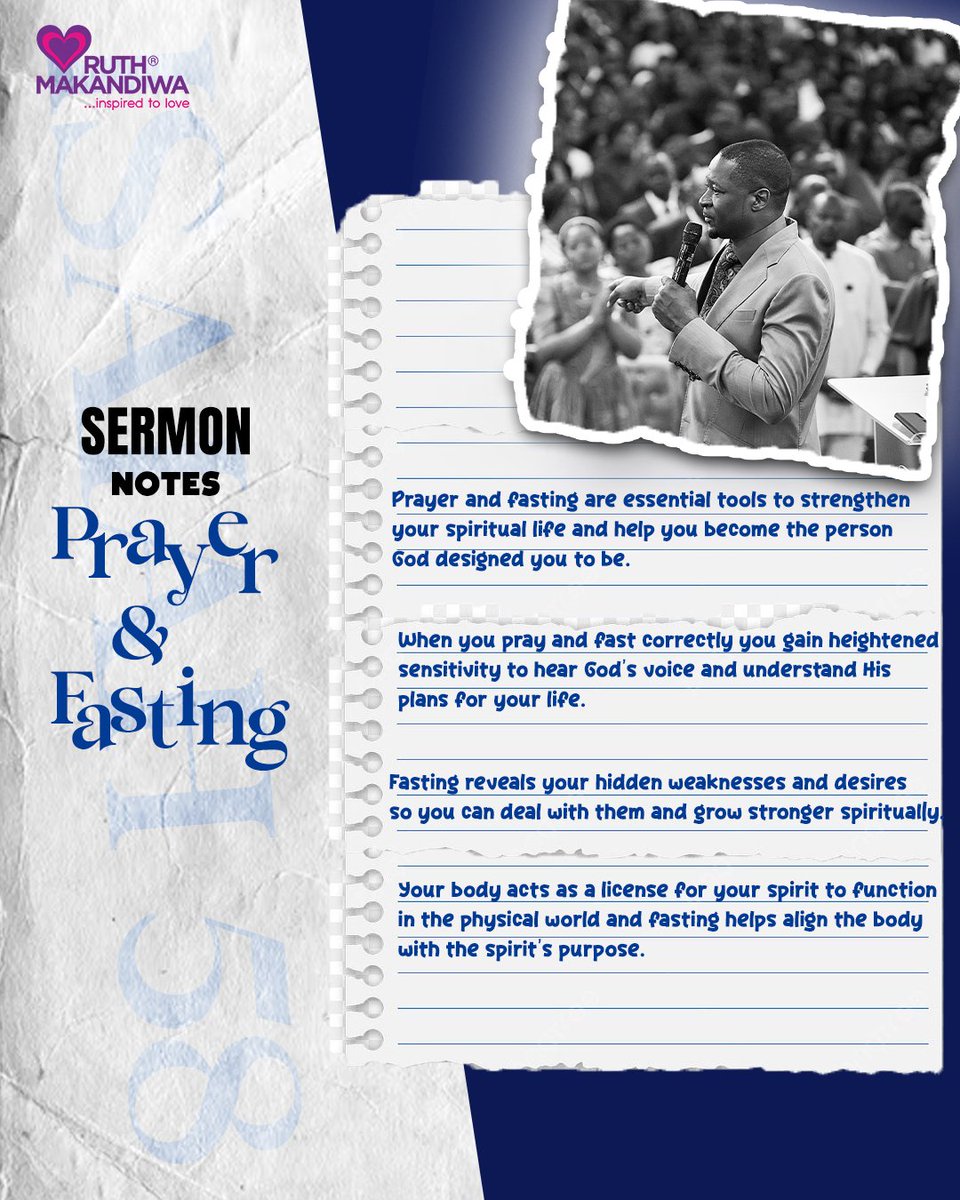 RUTH®
MAKANDIWA
...inspired to love
ISAIAH 58
SERMON
NOTES
Prayer
&
Fasting
Prayer and fasting are essential tools to strengthen
your spiritual life and help you become the person
God designed you to be.
When you pray and fast correctly you gain heightened
sensitivity to hear God's voice and understand His
plans for your life.
Fasting reveals your hidden weaknesses and desires
so you can deal with them and grow stronger spiritually.
Your body acts as a license for your spirit to function
in the physical world and fasting helps align the body
with the spirit's purpose.